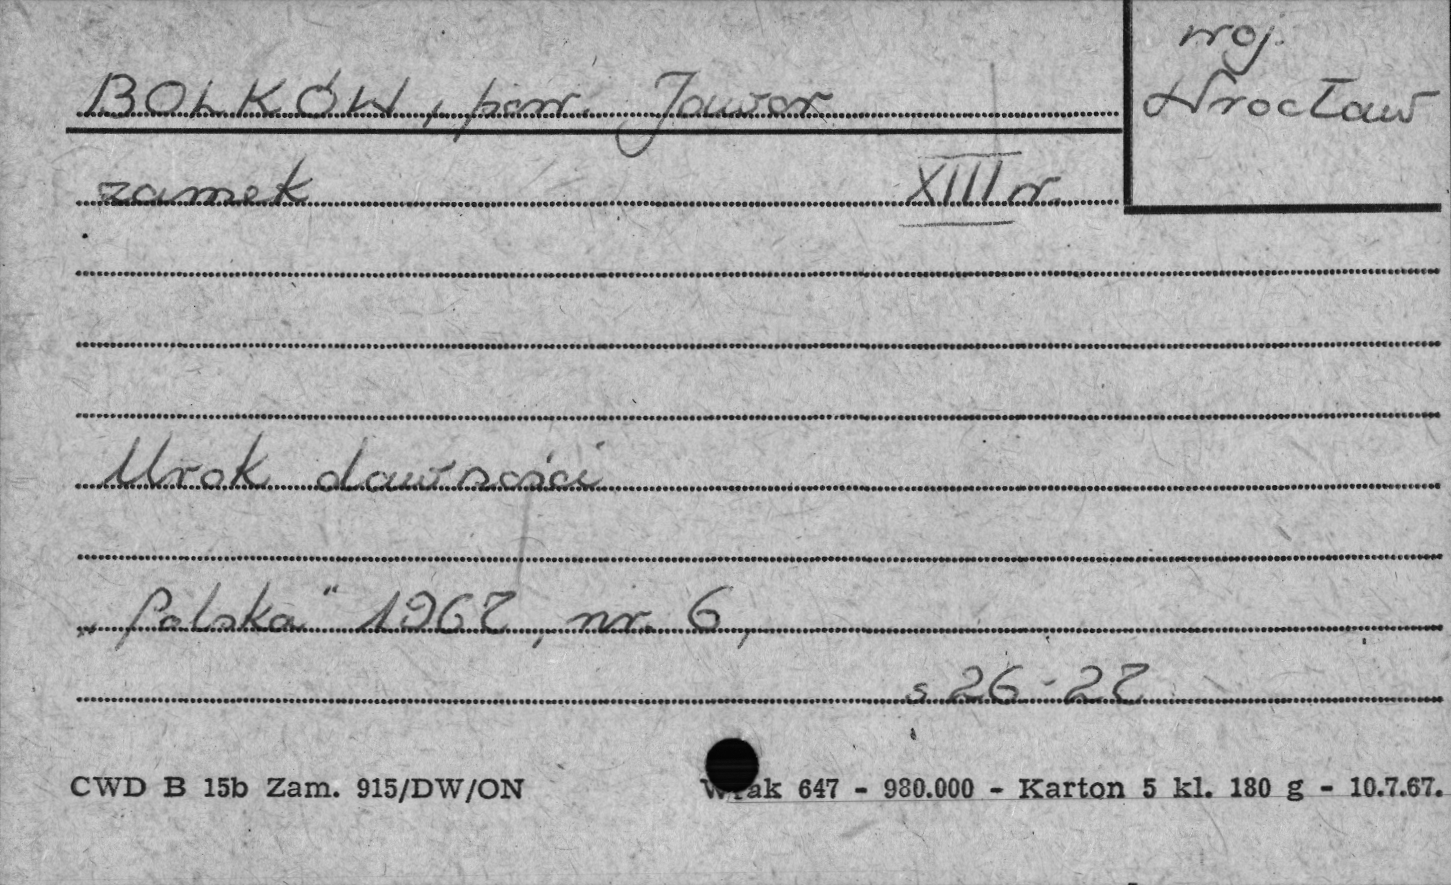 BOLKÓW, pow. Jawor
woj.
Wrocław
zamek XIII w.
Urok dawności
„Polska" 1967, nr. 6,
s 26-27
CWD B 15b Zam. 915/DW/ON
Wrak 647 - 980.000 - Karton 5 kl. 180 g - 10.7.67.